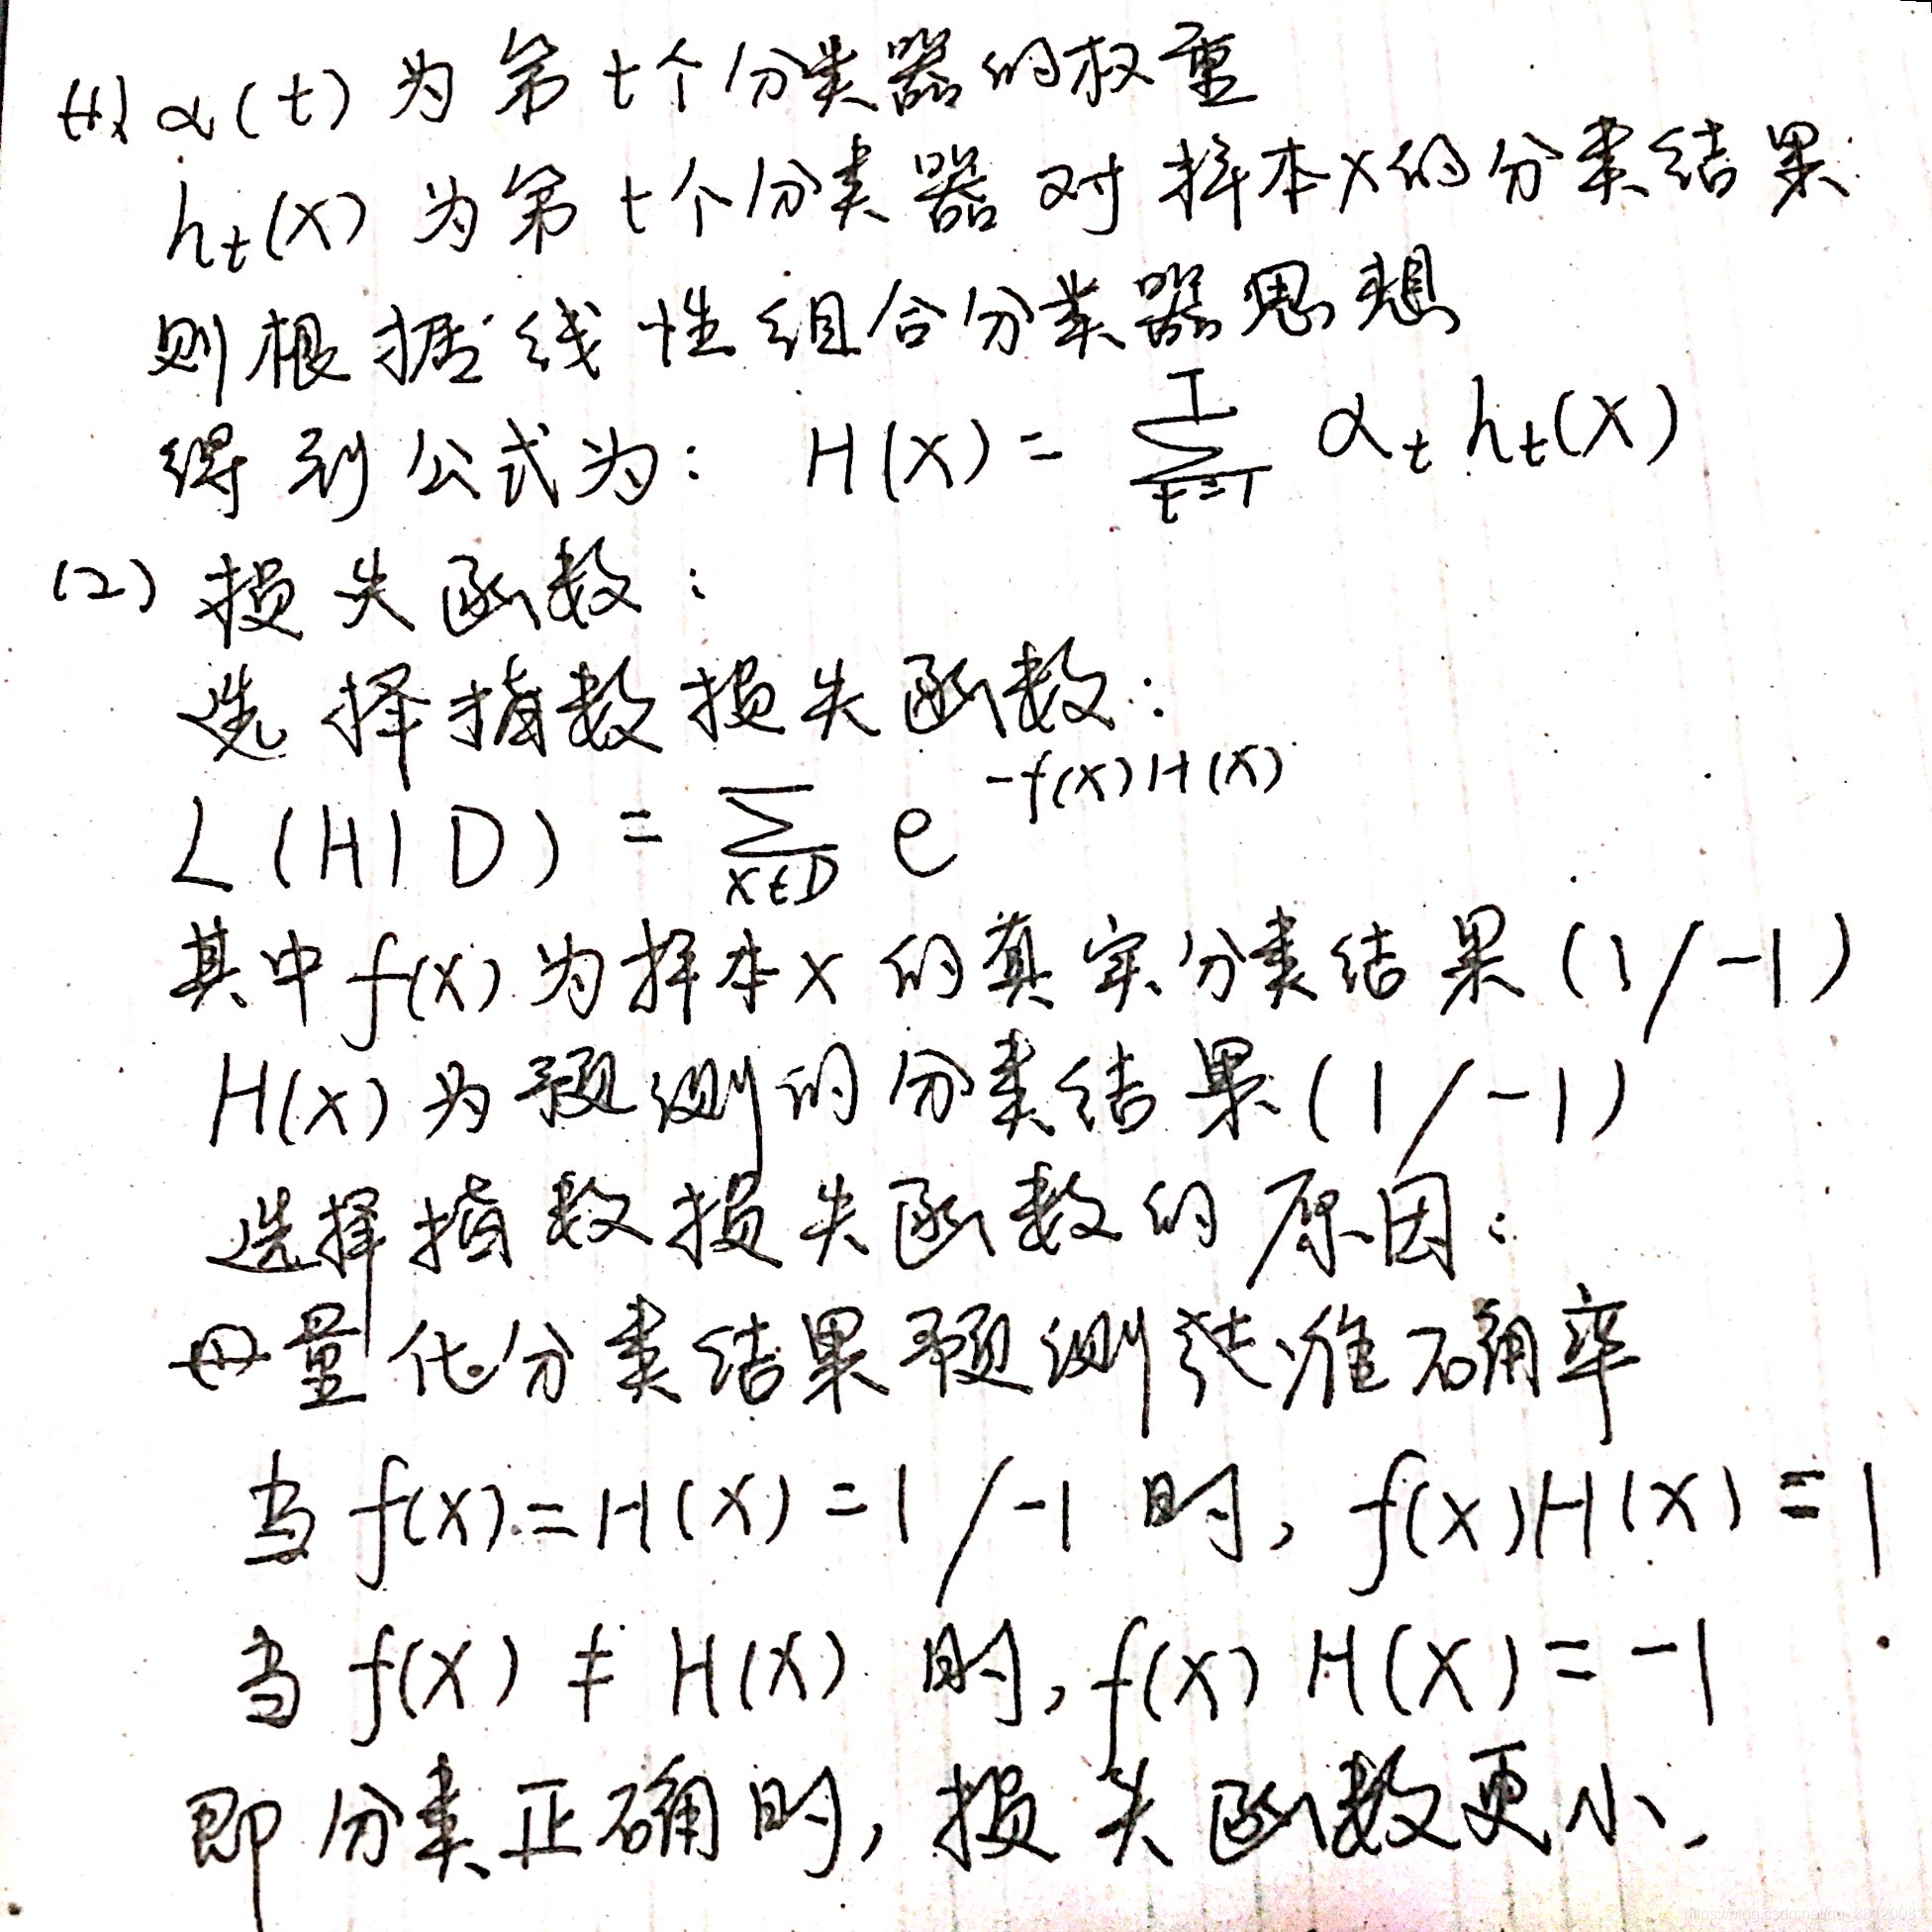 (1) α(t) 为第t个分类器的权重
h_t(x) 为第t个分类器对样本x的分类结果
则根据线性组合分类器思想
得到公式为: H(x) = ∑_{t=1}^{T} α_t h_t(x)
(2) 损失函数:
选择指数损失函数:
L(H|D) = ∑_{x∈D} e^{-f(x)H(x)}
其中f(x)为样本x的真实分类结果(1/-1)
H(x)为预测的分类结果(1/-1)
选择指数损失函数的原因:
量化分类结果预测准确率
当f(x)=H(x)=1/-1时, f(x)H(x)=1
当f(x)≠H(x)时, f(x)H(x)=-1
即分类正确时, 损失函数更小,